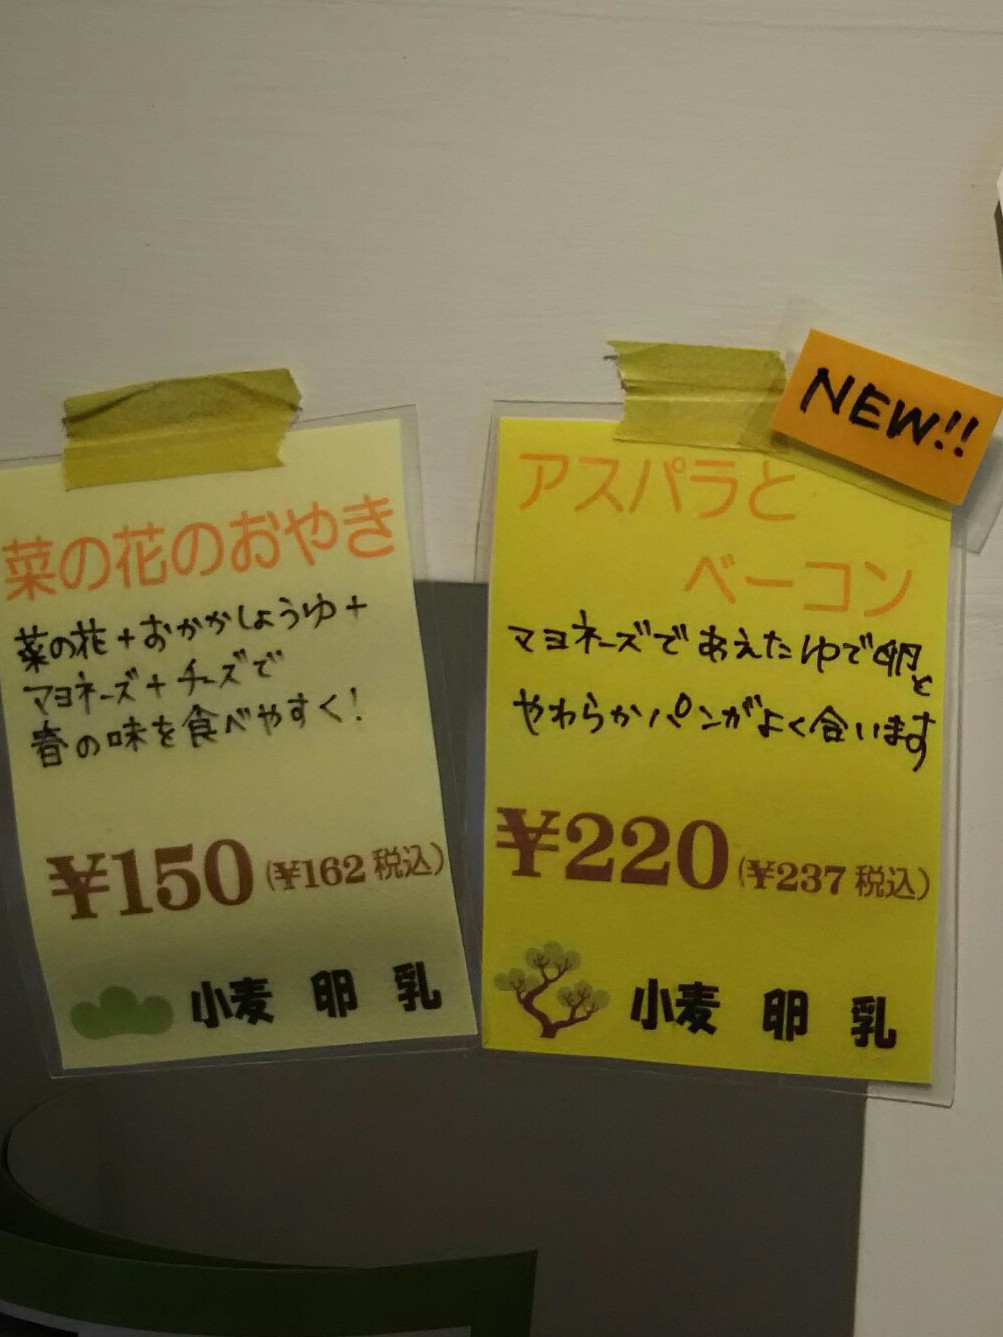 菜の花のおやき
菜の花+おかかしょうゆ+
マヨネーズ+チーズで
春の味を食べやすく!
¥150(¥162 税込)
小麦 卵 乳
NEW!!
アスパラと
ベーコン
マヨネーズであえたゆで卵と
やわらかパンがよく合います
¥220(¥237 税込)
小麦 卵 乳